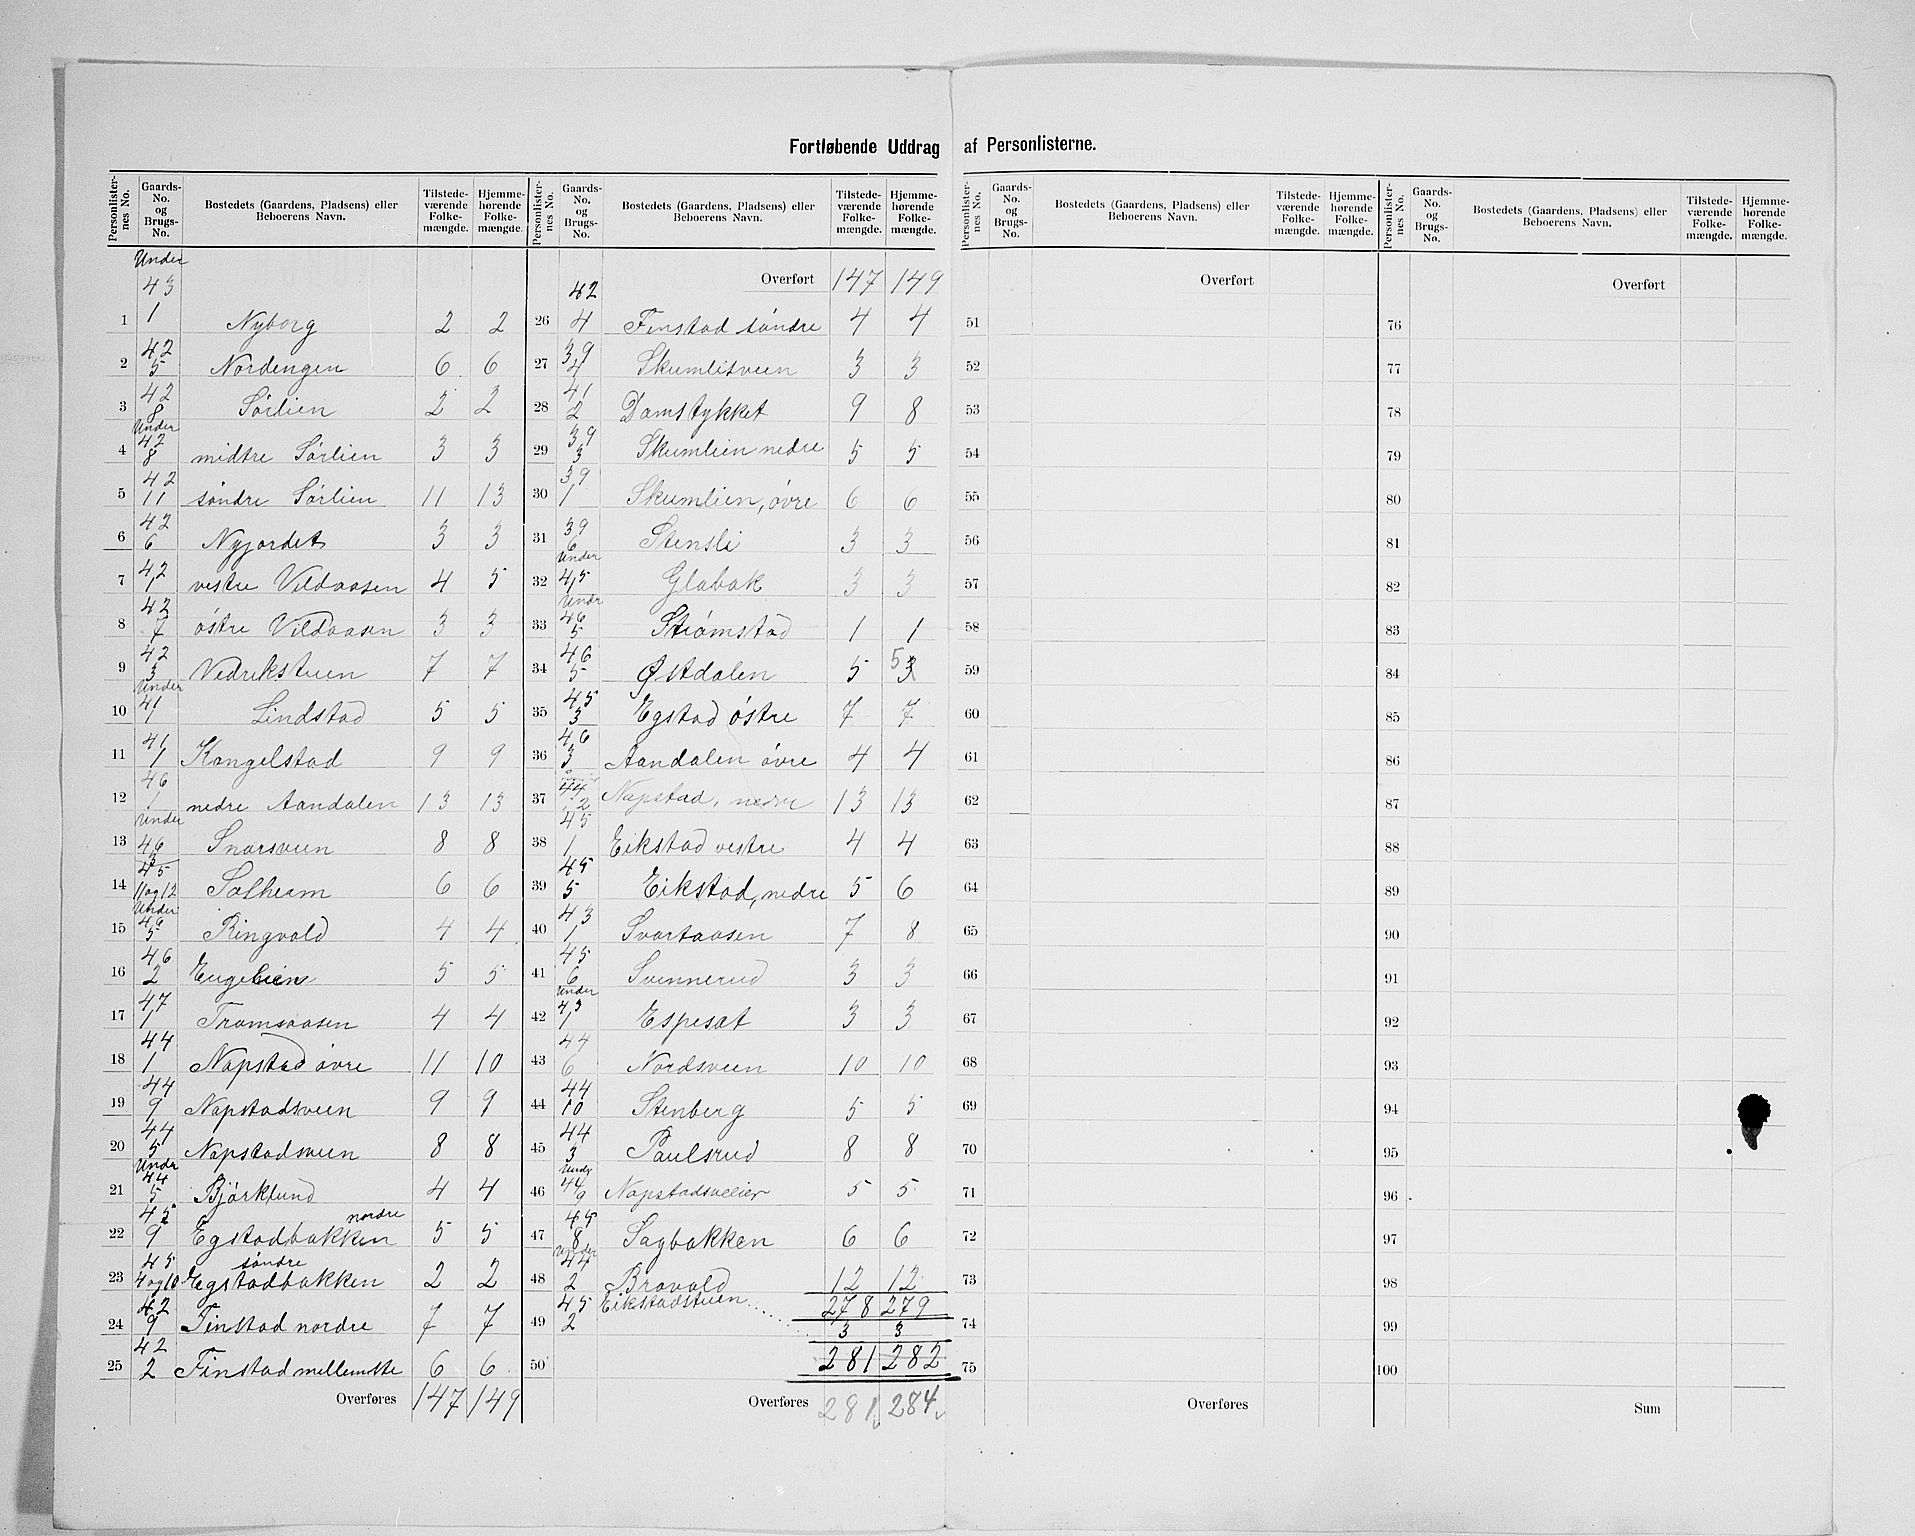 Fortløbende Uddrag af Personlisterne.
Personlister-nes No. Gaards-No. og Brugs-No. Bostedets (Gaardens, Pladsens) eller Beboerens Navn. Tilstede-værende Folke-mængde. Hjemme-hørende Folke-mængde.
Under 43
1 1 Nyborg 2 2
42
2 5 Nordengen 6 6
42
3 8 Sørlien 2 2
Under 42
4 8 midtre Sørlien 3 3
42
5 11 søndre Sørlien 11 13
42
6 6 Nyjordet 3 3
42
7 1 vestre Vildaasen 4 5
42
8 7 østre Vildaasen 3 3
42
9 3 Vedrikstuen 7 7
Under 41
10 1 Lindstad 5 5
41
11 1 Kangelstad 9 9
46
12 1 nedre Aandalen 13 13
Under 46
13 3 Snarsveen 8 8
45
14 11 og 12 Solheim 6 6
Under
15 5 Ringvold 4 4
46
16 2 Engelien 5 5
47
17 1 Tramsaasen 4 4
44
18 1 Napstad øvre 11 10
44
19 9 Napstadsveen 9 9
44
20 5 Napstadsveen 8 8
Under 44
21 5 Bjørklund 4 4
45 nordre
22 9 Egstadbakken 5 5
45 søndre
23 4 og 10 Egstadbakken 2 2
42
24 9 Finstad nordre 7 7
42
25 2 Finstad mellemste 6 6
Overføres 147 149
Personlister-nes No. Gaards-No. og Brugs-No. Bostedets (Gaardens, Pladsens) eller Beboerens Navn. Tilstede-værende Folke-mængde. Hjemme-hørende Folke-mængde.
Overført 147 149
42
26 4 Finstad søndre 4 4
39
27 4 Skumlisveen 3 3
41
28 2 Damstykket 9 8
39
29 3 Skumlien nedre 5 5
39
30 1 Skumlien, øvre 6 6
39
31 6 Stensli 3 3
Under 45
32 Glabak 3 3
Undr 46
33 5 Strømstad 1 1
46
34 5 Østdalen 5 5 3
45
35 3 Egstad østre 7 7
46
36 3 Aandalen øvre 4 4
44
37 2 Napstad, nedre 13 13
45
38 1 Eikstad vestre 4 4
45
39 5 Eikstad, nedre 5 6
43
40 1 Svartaasen 7 8
45
41 6 Svennerud 3 3
Under 43
42 1 Espesæt 3 3
44
43 6 Nordsveen 10 10
44
44 10 Stenberg 5 5
44
45 3 Paulsrud 8 8
Under 44
46 9 Napstadsveien 5 5
45
47 8 Sagbakken 6 6
Under 44
48 2 Bravold 12 12
45 Eikstadstuen 278 279
49 2 3 3
50 281 282
Overføres 281 284
Personlister-nes No. Gaards-No. og Brugs-No. Bostedets (Gaardens, Pladsens) eller Beboerens Navn. Tilstede-værende Folke-mængde. Hjemme-hørende Folke-mængde.
Overført
51
52
53
54
55
56
57
58
59
60
61
62
63
64
65
66
67
68
69
70
71
72
73
74
75
Overføres
Personlister-nes No. Gaards-No. og Brugs-No. Bostedets (Gaardens, Pladsens) eller Beboerens Navn. Tilstede-værende Folke-mængde. Hjemme-hørende Folke-mængde.
Overført
76
77
78
79
80
81
82
83
84
85
86
87
88
89
90
91
92
93
94
95
96
97
98
99
100
Sum